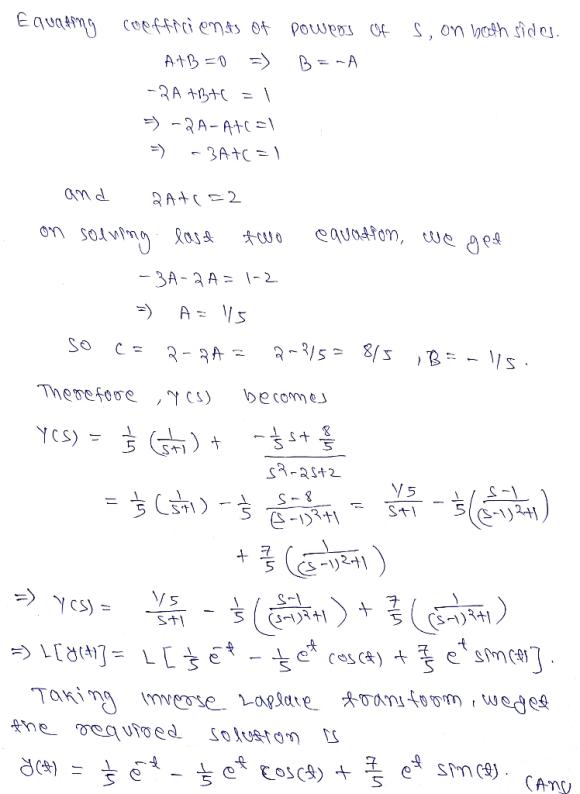 Equating coefficients of powers of s, on both sides.
A+B=0 => B=-A
-2A+B+C = 1
=> -2A-A+C=1
=> -3A+C=1
and 2A+C=2
on solving last two equation, we get
-3A-2A= 1-2
=> A= 1/5
so C= 2-2A = 2-2/5= 8/5 , B= - 1/5.
Therefore, Y(s) becomes
Y(s) = 1/5 (1/(s+1)) + (-1/5 s+ 8/5)/(s²-2s+2)
= 1/5 (1/(s+1)) - 1/5 (s-8)/((s-1)²+1) = (1/5)/(s+1) - 1/5 ((s-1)/((s-1)²+1))
+ 7/5 (1/((s-1)²+1))
=> Y(s) = (1/5)/(s+1) - 1/5 ((s-1)/((s-1)²+1)) + 7/5 (1/((s-1)²+1))
=> L[y(t)] = L[1/5 e^-t - 1/5 e^t cos(t) + 7/5 e^t sin(t)].
Taking inverse Laplace transform, we get
the required solution is
y(t) = 1/5 e^-t - 1/5 e^t cos(t) + 7/5 e^t sin(t). (Ans